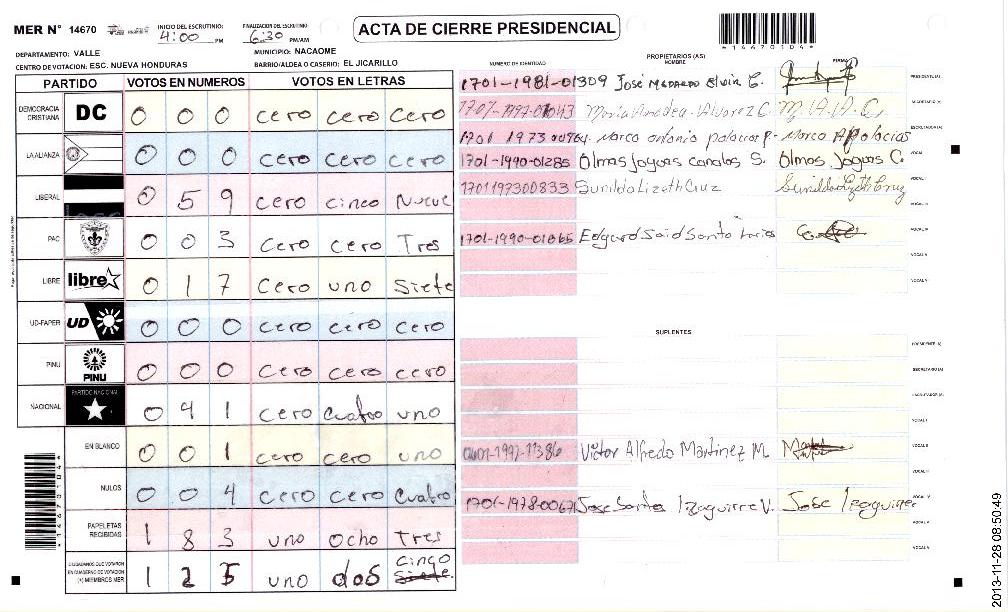 MER N° 14670
INICIO DEL ESCRUTINIO
4:00 PM
FINALIZACION DEL ESCRUTINIO
6:30 PM/AM
ACTA DE CIERRE PRESIDENCIAL
*14670104*
DEPARTAMENTO: VALLE
MUNICIPIO: NACAOME
CENTRO DE VOTACION: ESC. NUEVA HONDURAS
BARRIO/ALDEA O CASERIO: EL JICARILLO
PARTIDO VOTOS EN NUMEROS VOTOS EN LETRAS
DEMOCRACIA CRISTIANA DC 0 0 0 cero cero cero
LA ALIANZA 0 0 0 cero cero cero
LIBERAL 0 5 9 cero cinco Nueve
PAC 0 0 3 cero cero Tres
LIBRE libre 0 1 7 cero uno siete
UD-FAPER UD 0 0 0 cero cero cero
PINU PINU 0 0 0 cero cero cero
NACIONAL PARTIDO NACIONAL 0 4 1 cero cuatro uno
EN BLANCO 0 0 1 cero cero uno
NULOS 0 0 4 cero cero cuatro
PAPELETAS RECIBIDAS 1 8 3 uno ocho Tres
CIUDADANOS QUE VOTARON EN CUADERNO DE VOTACION (+) MIEMBROS MER 1 2 5 uno dos cinco
PROPIETARIOS (AS)
NUMERO DE IDENTIDAD NOMBRE FIRMA
1701-1981-01309 José G. PRESIDENTE (A)
Maria Alvarez C. M. A. A. C. SECRETARIO (A)
1701 1973 Marco antonio palacios P. Marco A Palacios ESCRUTADOR (A)
1701-1990-01285 Olmas Joguas canales S. Olmos Joguas C. VOCAL I
1701197300833 Sunilda Lizeth Cruz Sunilda Lizeth Cruz VOCAL II
VOCAL III
1701-1990-01065 Edgard Said Santo VOCAL IV
VOCAL V
VOCAL VI
SUPLENTES
PRESIDENTE (A)
SECRETARIO (A)
ESCRUTADOR (A)
VOCAL I
Victor Alfredo Martinez M. VOCAL II
VOCAL III
1701-1978-00671 Jose Santos Izaguirre V. Jose Izaguirre VOCAL IV
VOCAL V
VOCAL VI
*14670104*
2013-11-28 08:50:49